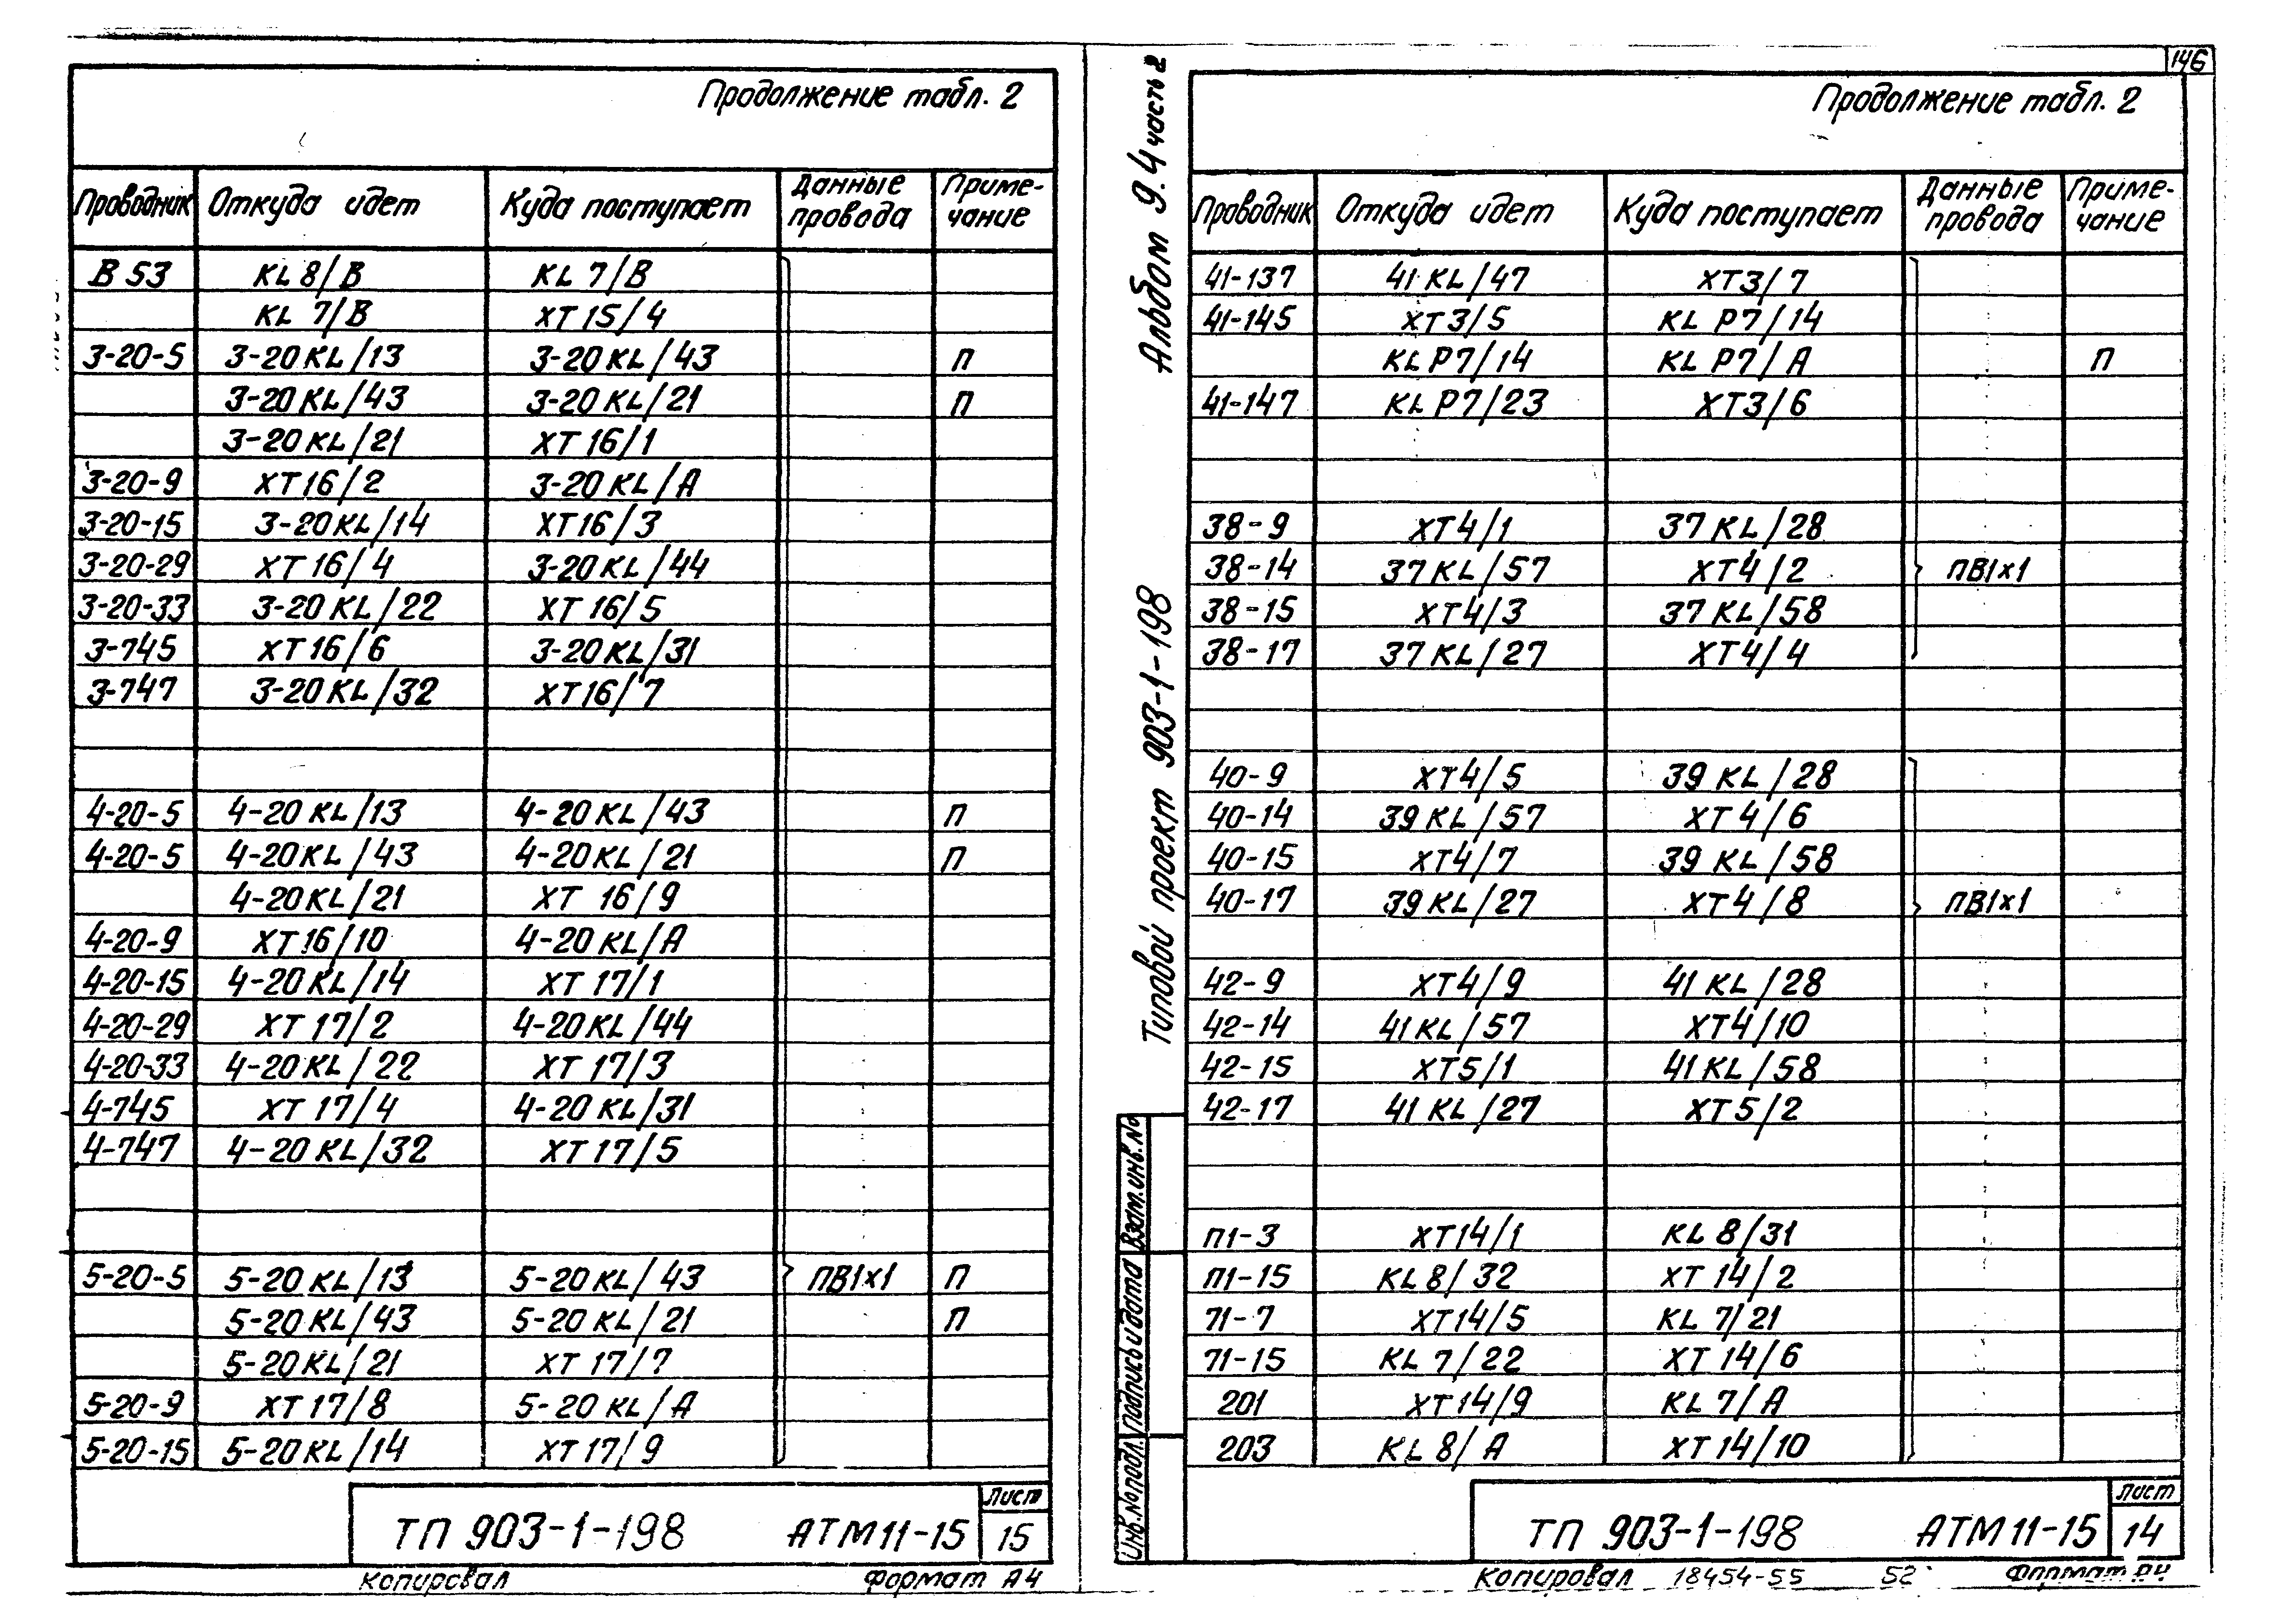 Продолжение табл. 2
Проводник Откуда идет Куда поступает Данные провода Приме-чание
В 53 KL 8/В KL 7/В
KL 7/В ХТ 15/4
3-20-5 3-20 KL/13 3-20 KL/43 П
3-20 KL/43 3-20 KL/21 П
3-20 KL/21 ХТ 16/1
3-20-9 ХТ 16/2 3-20 KL/А
3-20-15 3-20 KL/14 ХТ 16/3
3-20-29 ХТ 16/4 3-20 KL/44
3-20-33 3-20 KL/22 ХТ 16/5
3-745 ХТ 16/6 3-20 KL/31
3-747 3-20 KL/32 ХТ 16/7
4-20-5 4-20 KL/13 4-20 KL/43 П
4-20-5 4-20 KL/43 4-20 KL/21 П
4-20 KL/21 ХТ 16/9
4-20-9 ХТ 16/10 4-20 KL/А
4-20-15 4-20 KL/14 ХТ 17/1
4-20-29 ХТ 17/2 4-20 KL/44
4-20-33 4-20 KL/22 ХТ 17/3
4-745 ХТ 17/4 4-20 KL/31
4-747 4-20 KL/32 ХТ 17/5
5-20-5 5-20 KL/13 5-20 KL/43 ПВ1х1 П
5-20 KL/43 5-20 KL/21 П
5-20 KL/21 ХТ 17/7
5-20-9 ХТ 17/8 5-20 KL/А
5-20-15 5-20 KL/14 ХТ 17/9
ТП 903-1-198 АТМ11-15 Лист 15
Копировал Формат А4
146
Альбом 9.4 часть 2
Типовой проект 903-1-198
Взам.инв.№
Подпись и дата
Инв.№подл.
Продолжение табл. 2
Проводник Откуда идет Куда поступает Данные провода Приме-чание
41-137 41 KL/47 ХТ3/7
41-145 ХТ3/5 KL Р7/14
KL Р7/14 KL Р7/А П
41-147 KL Р7/23 ХТ3/6
38-9 ХТ4/1 37 KL/28
38-14 37 KL/57 ХТ4/2 ПВ1х1
38-15 ХТ4/3 37 KL/58
38-17 37 KL/27 ХТ4/4
40-9 ХТ4/5 39 KL/28
40-14 39 KL/57 ХТ4/6
40-15 ХТ4/7 39 KL/58
40-17 39 KL/27 ХТ4/8 ПВ1х1
42-9 ХТ4/9 41 KL/28
42-14 41 KL/57 ХТ4/10
42-15 ХТ5/1 41 KL/58
42-17 41 KL/27 ХТ5/2
П1-3 ХТ14/1 KL 8/31
П1-15 KL 8/32 ХТ 14/2
71-7 ХТ14/5 KL 7/21
71-15 KL 7/22 ХТ 14/6
201 ХТ14/9 KL 7/А
203 KL 8/А ХТ 14/10
ТП 903-1-198 АТМ11-15 Лист 14
Копировал 18454-55 52 Формат А4